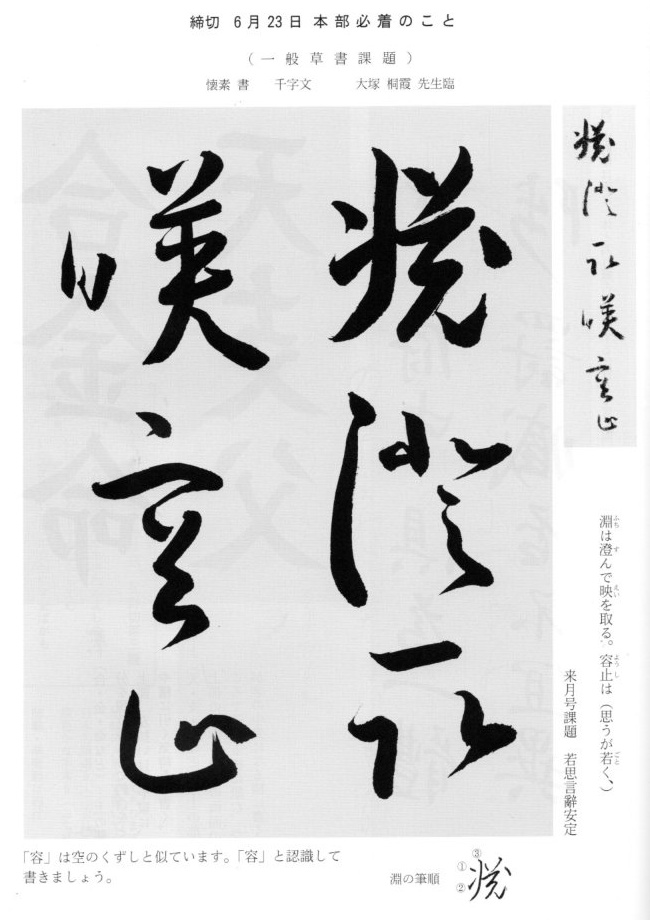 締切 6月23日 本部必着のこと
(一般草書課題)
懐素 書 千字文 大塚 桐霞 先生臨
淵澄取
暎容止
淵澄取暎容止
淵は澄んで映を取る。容止は(思うが若く、)
ふち す えい ようし ごと
来月号課題 若思言辭安定
「容」は空のくずしと似ています。「容」と認識して
書きましょう。
淵の筆順 ①②③ 淵